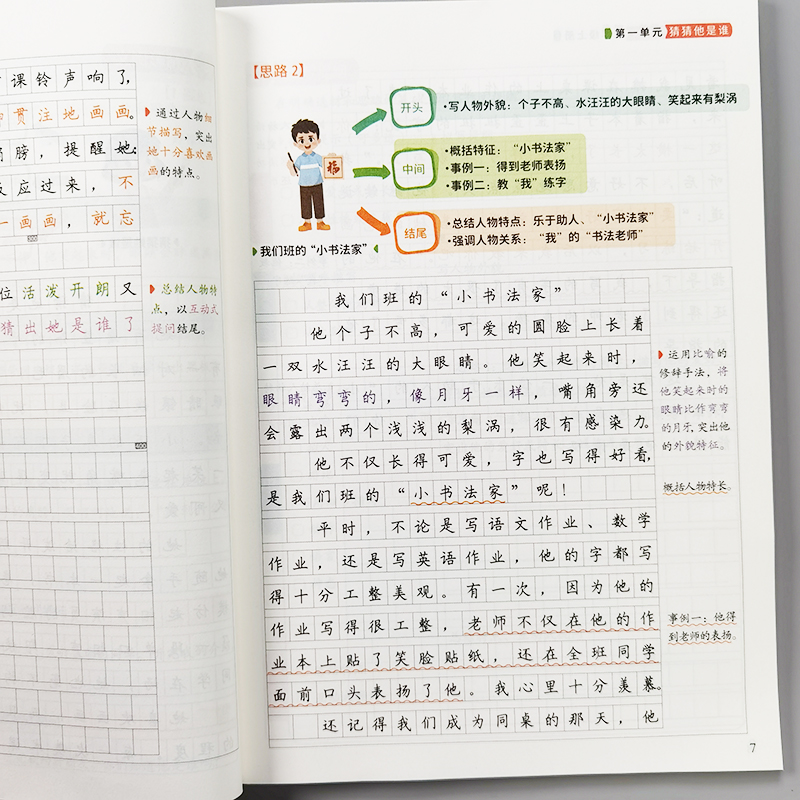 课铃声响了,
贯注地画画。
膀,提醒她:
应过来,不
一画画,就忘
300
位活泼开朗又
猜出她是谁了
400
通过人物细
节描写,突出
她十分喜欢画
画的特点。
总结人物特
点,以互动式
提问结尾。
第一单元 猜猜他是谁
【思路2】
开头
·写人物外貌:个子不高、水汪汪的大眼睛、笑起来有梨涡
中间
·概括特征:“小书法家”
·事例一:得到老师表扬
·事例二:教“我”练字
福
结尾
·总结人物特点:乐于助人、“小书法家”
·强调人物关系:“我”的“书法老师”
我们班的“小书法家”
我们班的“小书法家”
他个子不高,可爱的圆脸上长着
一双水汪汪的大眼睛。他笑起来时,
眼睛弯弯的,像月牙一样,嘴角旁还
会露出两个浅浅的梨涡,很有感染力。
他不仅长得可爱,字也写得好看,
是我们班的“小书法家”呢!
平时,不论是写语文作业、数学
作业,还是写英语作业,他的字都写
得十分工整美观。有一次,因为他的
作业写得很工整,老师不仅在他的作
业本上贴了笑脸贴纸,还在全班同学
面前口头表扬了他。我心里十分羡慕。
还记得我们成为同桌的那天,他
运用比喻的
修辞手法,将
他笑起来时的
眼睛比作弯弯
的月牙,突出他
的外貌特征。
概括人物特长。
事例一:他得
到老师的表扬。
7